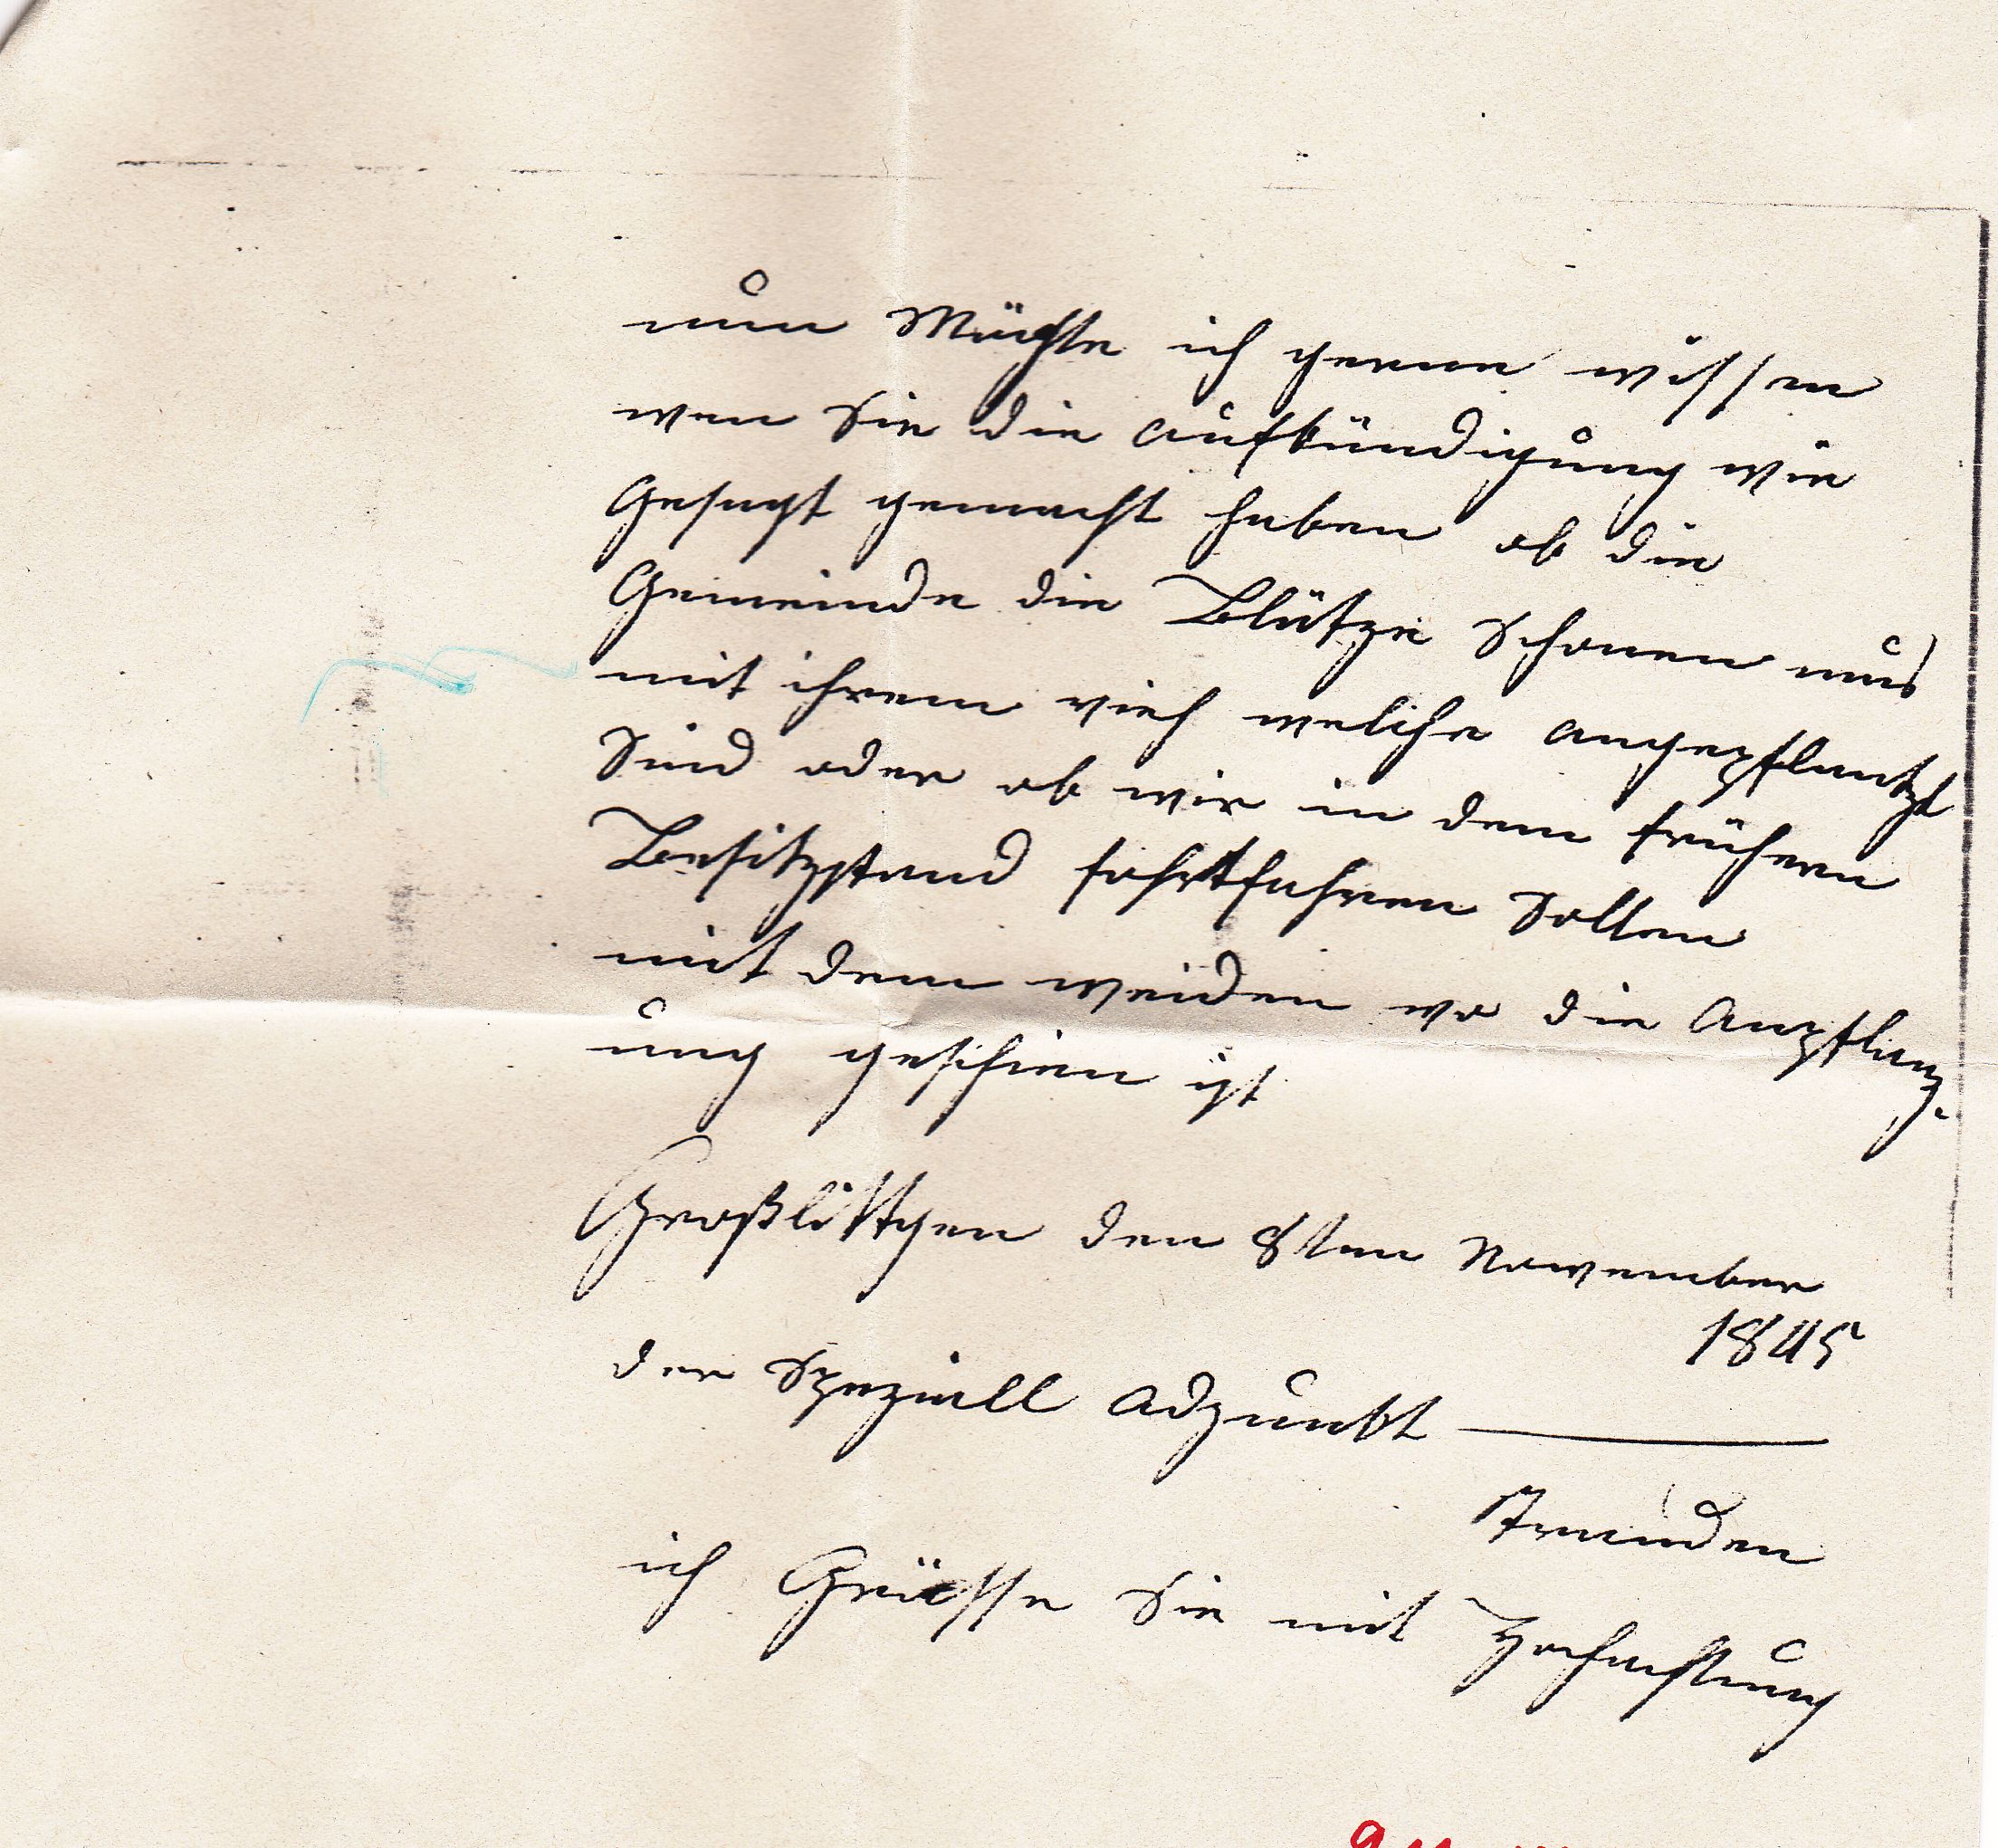 nun Möchte ich gerne wissen
wen Sie die aufkündigung wie
Gesagt gemacht haben ob die
Gemeinde die Blätze Schonen mus
mit ihrem vieh welche angepflantzt
Sind oder ob wir in dem frühern
Besitzstand fohrtfahren Sollen
mit dem weiden wo die Anpflanz-
ung geschien ist
Großlittgen den 8ten November
1845
der Speziall Adjunkt
ich Grüsse Sie mit Hochachtung